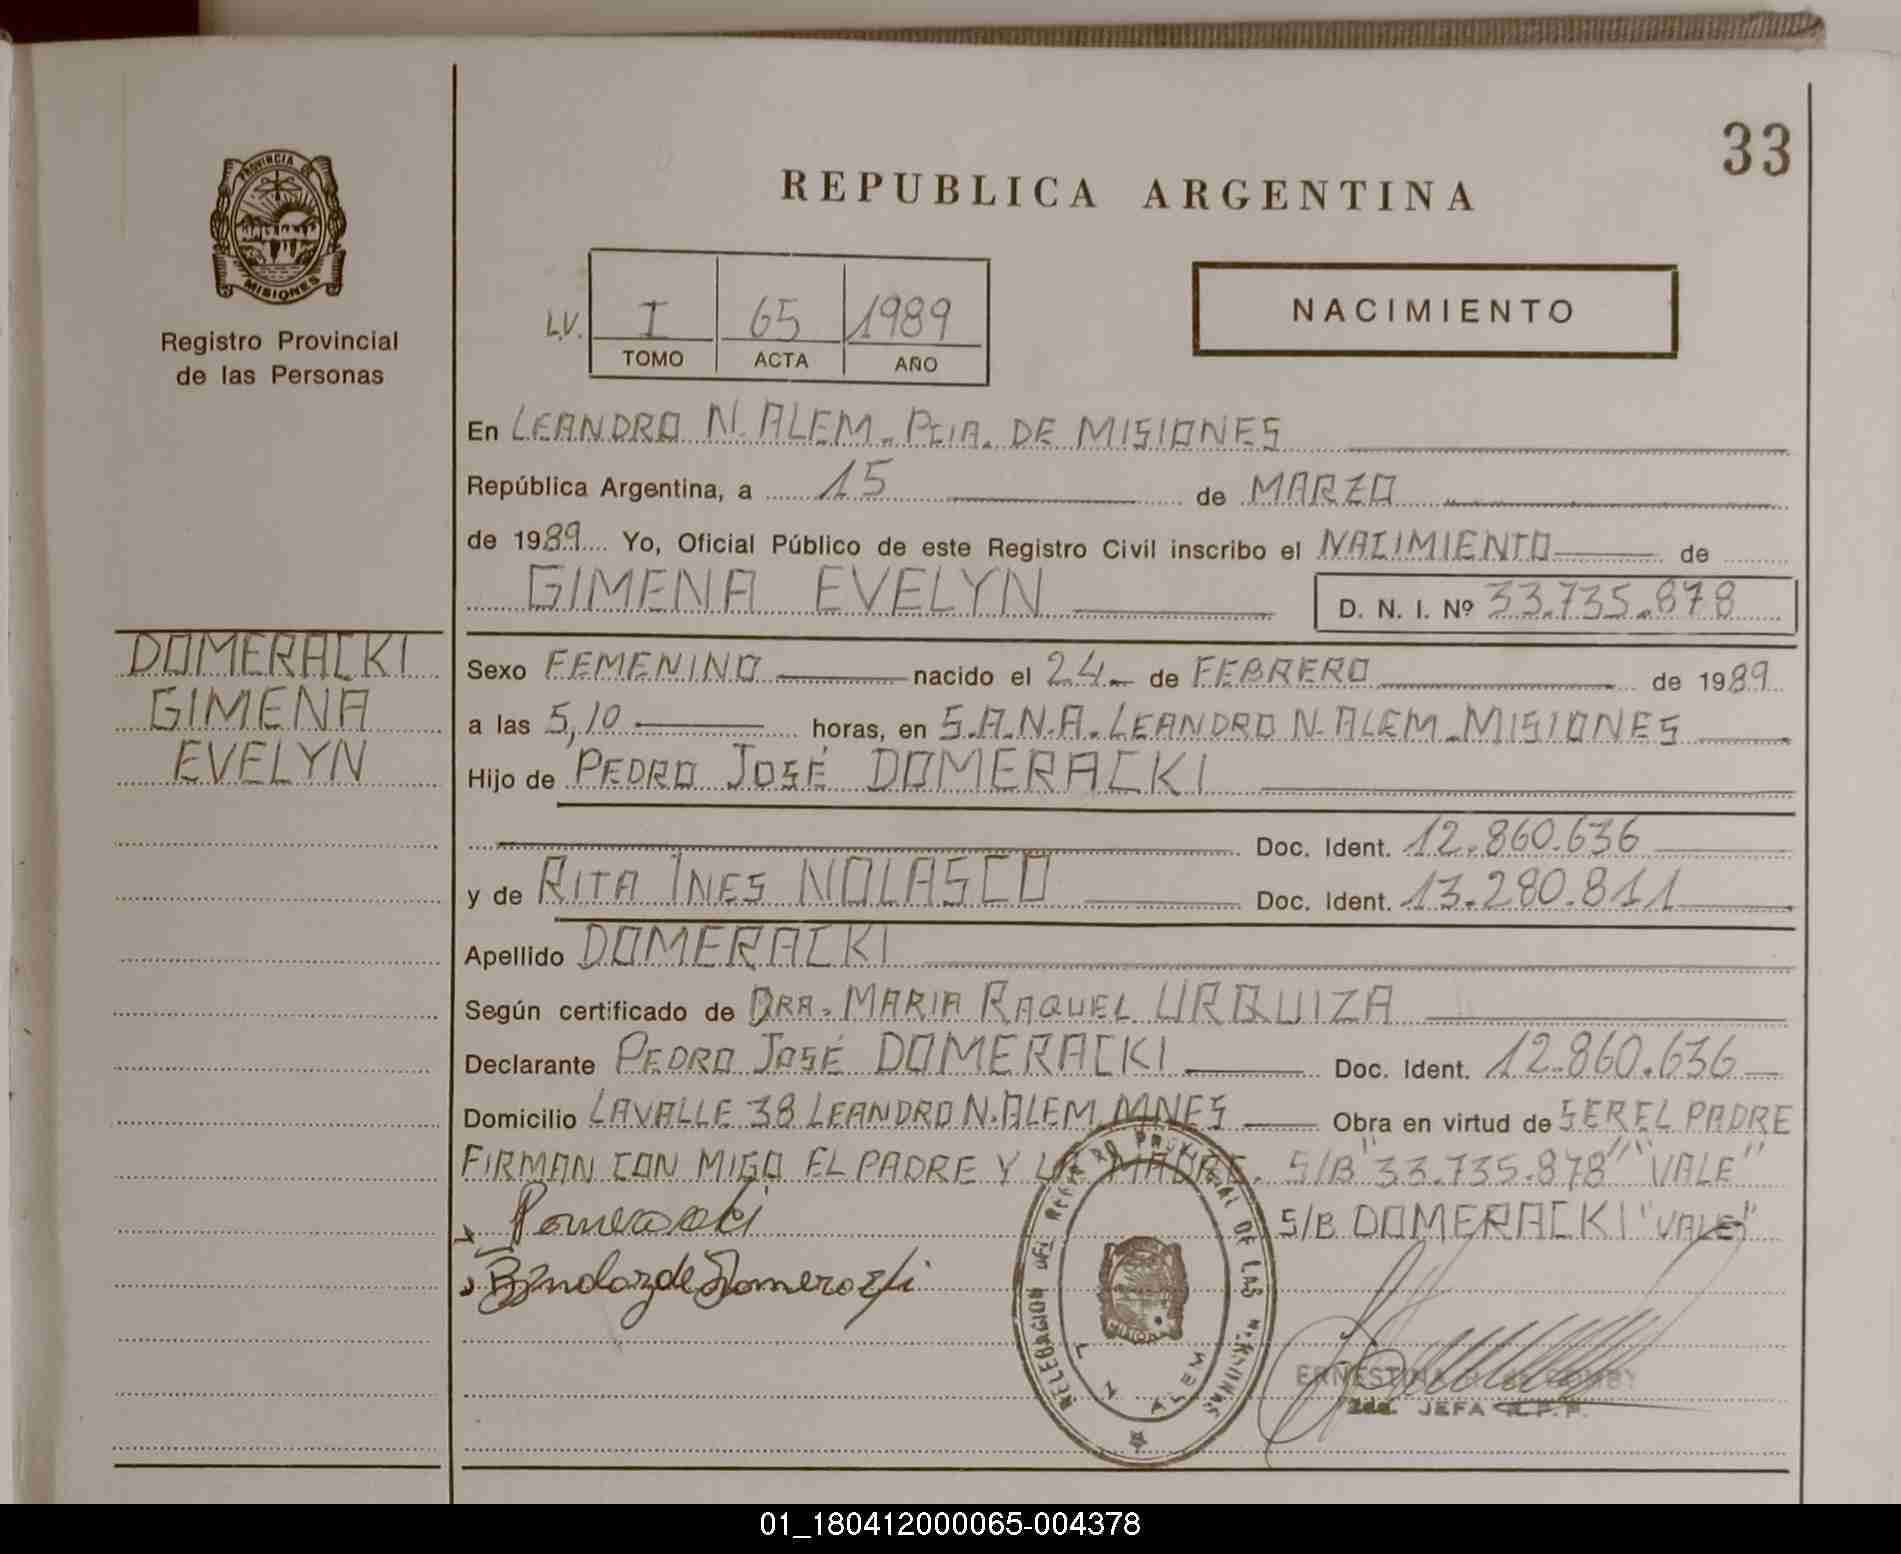 33
PROVINCIA DE
MISIONES
Registro Provincial
de las Personas
REPUBLICA ARGENTINA
LV. I 65 1989
TOMO ACTA AÑO
NACIMIENTO
En LEANDRO N. ALEM - PCIA. DE MISIONES
República Argentina, a 15 de MARZO
de 1989 Yo, Oficial Público de este Registro Civil inscribo el NACIMIENTO de
GIMENA EVELYN D. N. I. Nº 33.735.878
DOMERACKI
GIMENA
EVELYN
Sexo FEMENINO nacido el 24 de FEBRERO de 1989
a las 5,10 horas, en S.A.N.A. LEANDRO N. ALEM - MISIONES
Hijo de PEDRO JOSÉ DOMERACKI
Doc. Ident. 12.860.636
y de RITA INES NOLASCO Doc. Ident. 13.280.811
Apellido DOMERACKI
Según certificado de DRA. MARIA RAQUEL URQUIZA
Declarante PEDRO JOSÉ DOMERACKI Doc. Ident. 12.860.636
Domicilio LAVALLE 38 LEANDRO N. ALEM MNES Obra en virtud de SER EL PADRE
FIRMAN CON MIGO EL PADRE Y LA MADRE. S/B "33.735.878" "VALE"
S/B DOMERACKI "VALE"
DE LAS
L N ALEM
2da. JEFA R.P.P.
01_180412000065-004378